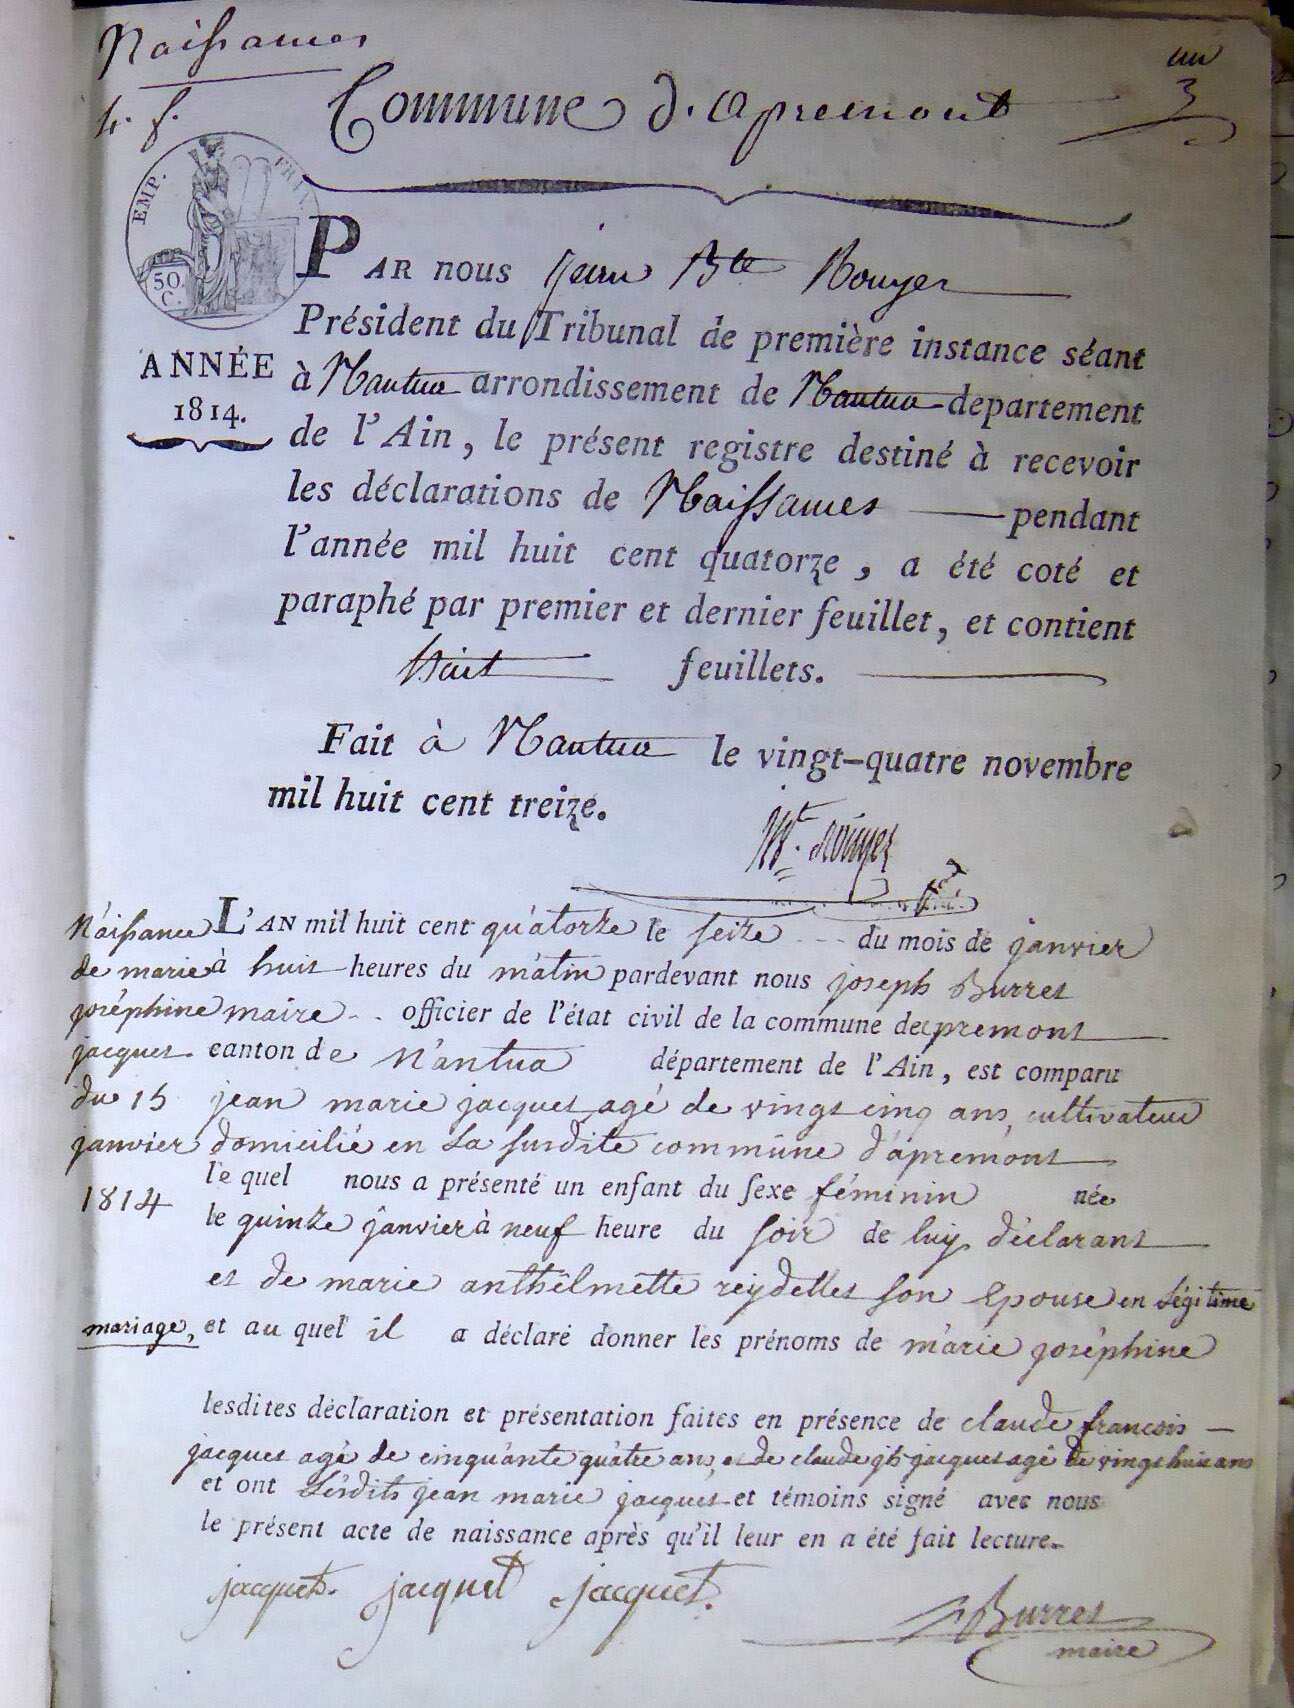 Naissances
un
3
Commune d'apremont
EMP. FRAN.
50.
C.
PAR nous jean Bte Rouyer
Président du Tribunal de première instance séant
à Nantua arrondissement de Nantua departement
de l'Ain, le présent registre destiné à recevoir
les déclarations de Naissances pendant
l'année mil huit cent quatorze, a été coté et
paraphé par premier et dernier feuillet, et contient
huit feuillets.
ANNÉE
1814.
Fait à Nantua le vingt-quatre novembre
mil huit cent treize.
Rouyer
Naissance
de marie
joséphine
jacquet
du 15
janvier
1814
L'AN mil huit cent quatorze le seize du mois de janvier
à huit heures du matin pardevant nous joseph Burret
maire officier de l'état civil de la commune de apremont
canton de Nantua département de l'Ain, est comparu
jean marie jacquet agé de vingt cinq ans, cultivateur
domicilié en la susdite commune d'apremont
le quel nous a présenté un enfant du sexe féminin née
le quinze janvier à neuf heure du soir de luy déclarant
et de marie anthelmette reydellet son Epouse en Légitime
mariage, et au quel il a déclaré donner les prénoms de marie joséphine
lesdites déclaration et présentation faites en présence de claude françois
jacquet agé de cinquante quatre ans, et de claude jh jacquet agé de vingt huit ans
et ont Lesdits jean marie jacquet et témoins signé avec nous
le présent acte de naissance après qu'il leur en a été fait lecture.
jacquet. jacquet jacquet.
Burret
maire